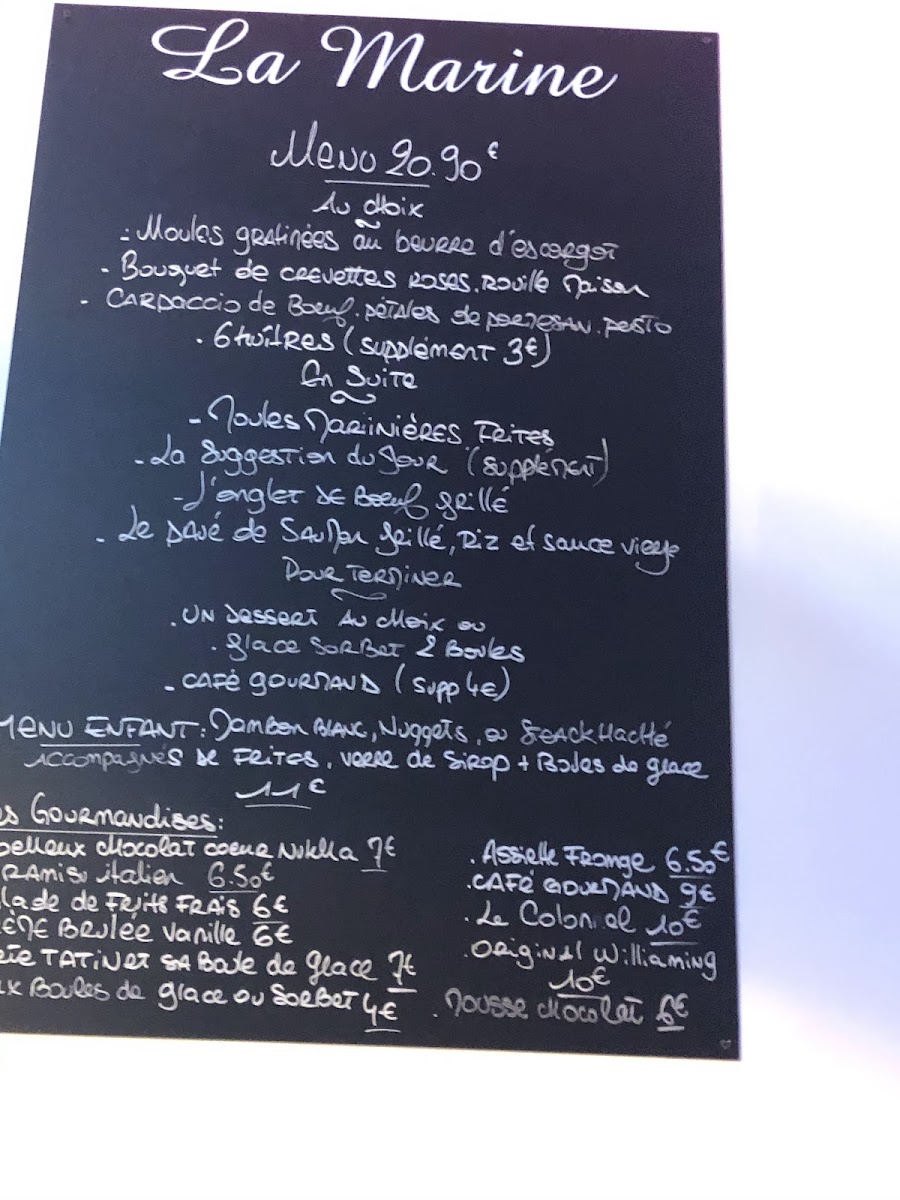 La Marine
Menu 20.90€
Au choix
- Moules gratinées au beurre d'escargot
- Bouquet de crevettes roses, rouille maison
- Carpaccio de Boeuf, pétales de parmesan, pesto
- 6 huîtres (supplément 3€)
En Suite
- Moules Mariinières, Frites
- La Suggestion du Jour (supplément)
- L'onglet de Boeuf grillé
- Le pavé de Saumon grillé, Riz et sauce vierge
Pour Terminer
. Un dessert au choix ou
. glace Sorbet 2 Boules
- Café gourmand (supp 4€)
Menu Enfant: Jambon Blanc, Nuggets, ou Steack Haché
Accompagnés de Frites, verre de Sirop + Boules de glace
11€
es Gourmandises:
oelleux chocolat coeur Nutella 7€
ramisu italien 6.50€
lade de Fruits Frais 6€
ème Brulée Vanille 6€
te Tatin et sa Boule de glace 7€
x Boules de glace ou Sorbet 4€
. Assiette Fromge 6.50€
. Café gourmand 9€
. Le Colonel 10€
. Original Williaming
10€
. Mousse chocolat 6€